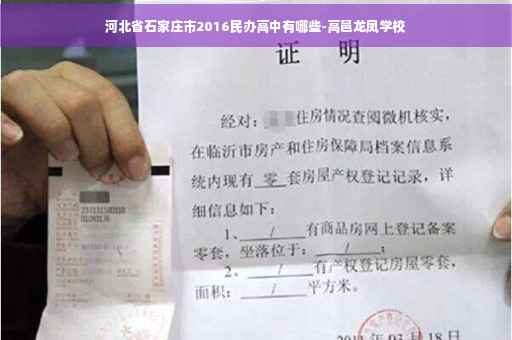 河北省石家庄市2016民办高中有哪些-高邑龙凤学校
证 明
经对： 住房情况查阅微机核实，
在临沂市房产和住房保障局档案信息系
统内现有 零 套房屋产权登记记录，详
细信息如下：
1、 / 有商品房网上登记备案
零套，坐落位于： / ；
2、 / 有产权登记房屋零套，
面积： / 平方米。
年 03 月 18 日